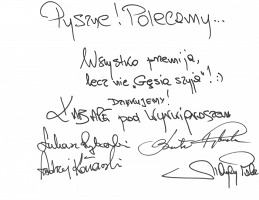 Pyszne! Polecamy...
Wszystko przemija,
lecz nie „Gęsia szyja”! :)
DZIĘKUJEMY!
KABARET pod Wyrwigroszem
Łukasz Rybarski
Andrzej Kozłowski